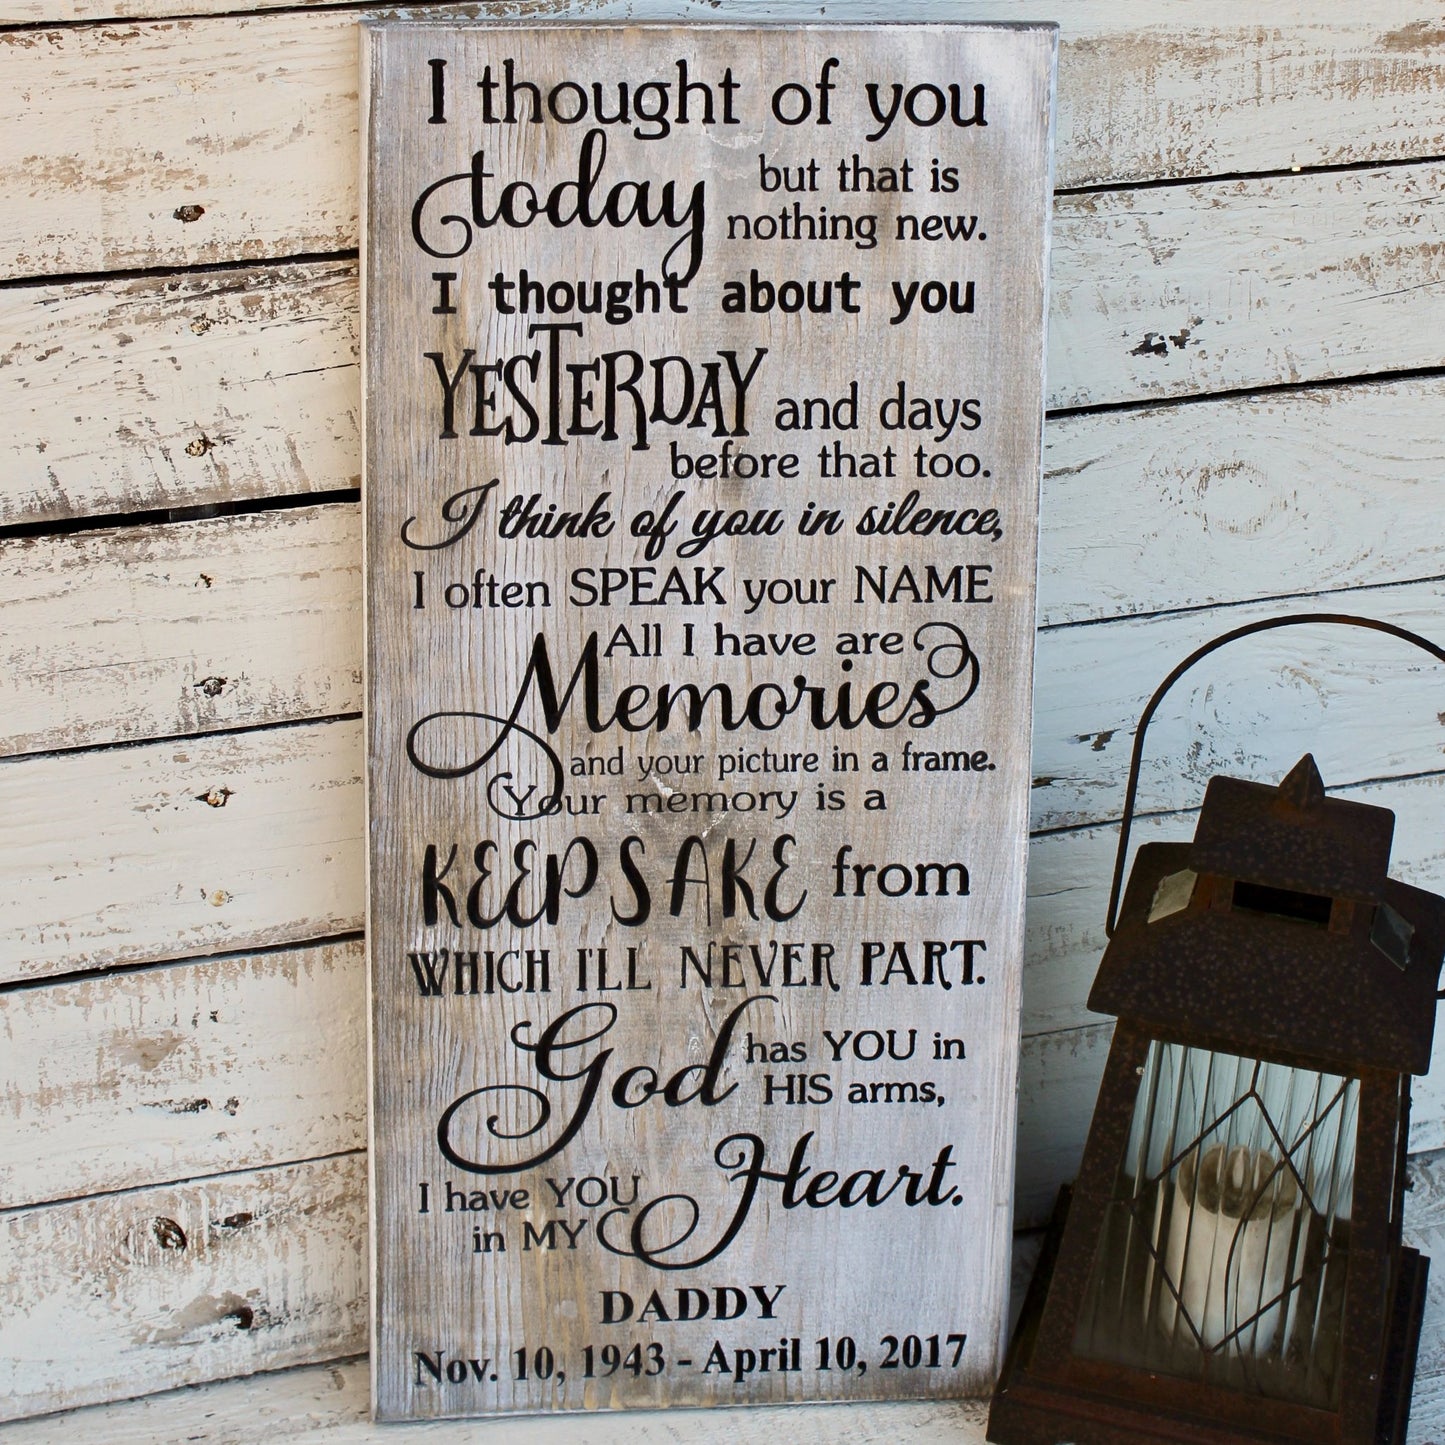 I thought of you
today but that is
nothing new.
I thought about you
YESTERDAY and days
before that too.
I think of you in silence,
I often SPEAK your NAME
All I have are
Memories
and your picture in a frame.
Your memory is a
KEEPSAKE from
WHICH I'LL NEVER PART.
God has YOU in
HIS arms,
I have YOU
in MY Heart.
DADDY
Nov. 10, 1943 - April 10, 2017